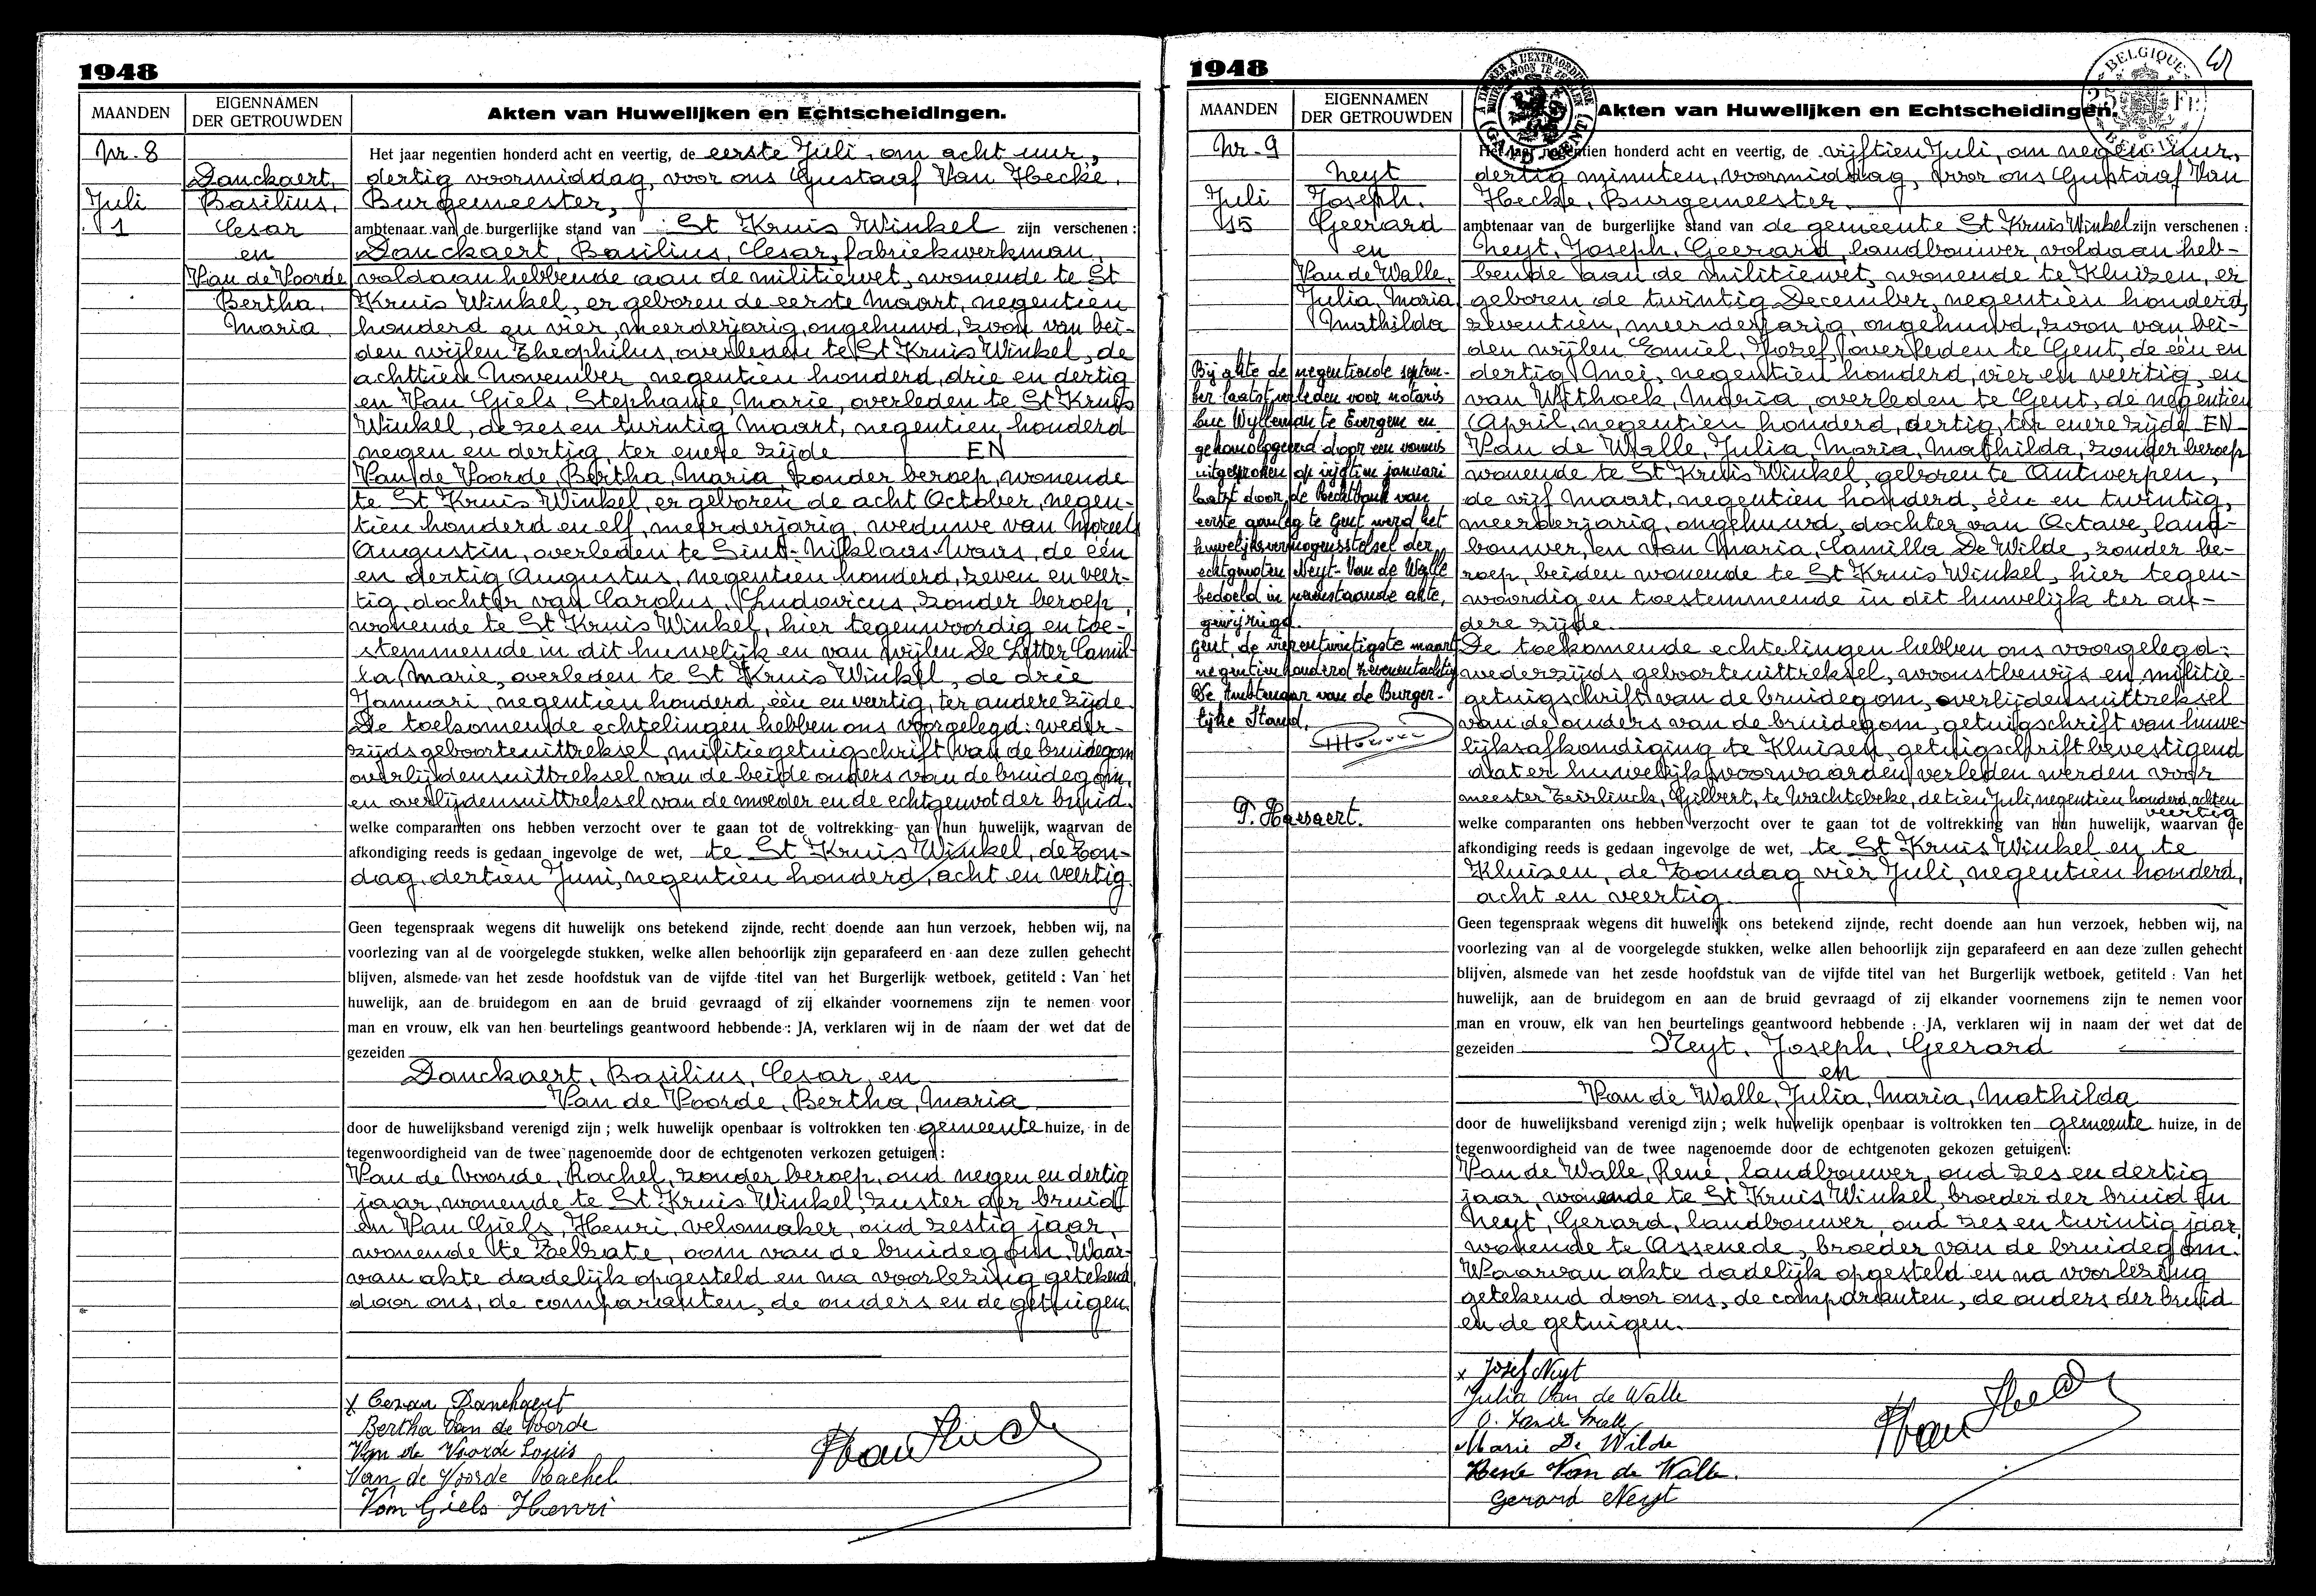 1948
MAANDEN
EIGENNAMEN
DER GETROUWDEN
Akten van Huwelijken en Echtscheidingen.
Nr. 8
Juli
1
Danckaert,
Basilius,
Cesar
en
Van de Voorde
Bertha,
Maria
Het jaar negentien honderd acht en veertig, de eerste Juli, om acht uur,
dertig voormiddag, voor ons Gustaaf Van Hecke,
Burgemeester,
ambtenaar van de burgerlijke stand van St Kruis Winkel zijn verschenen :
Danckaert, Basilius, Cesar, fabriekwerkman,
voldaan hebbende aan de militiewet, wonende te St
Kruis Winkel, er geboren de eerste Maart, negentien
honderd en vier, meerderjarig, ongehuwd, zoon van bei-
den wijlen Theophilus, overleden te St Kruis Winkel, de
achttien November, negentien honderd, drie en dertig
en Van Giels, Stephanie, Marie, overleden te St Kruis
Winkel, de zes en twintig Maart, negentien honderd
negen en dertig, ter enere zijde EN
Van de Voorde, Bertha, Maria, zonder beroep, wonende
te St Kruis Winkel, er geboren de acht October, negen-
tien honderd en elf, meerderjarig, weduwe van Moreels
Augustin, overleden te Sint-Niklaas-Waas, de één
en dertig Augustus, negentien honderd, zeven en veer-
tig, dochter van Carolus, Ludovicus, zonder beroep,
wonende te St Kruis Winkel, hier tegenwoordig en toe-
stemmende in dit huwelijk en van wijlen De Letter Camil-
la, Marie, overleden te St Kruis Winkel, de drie
Januari, negentien honderd, één en veertig, ter andere zijde
De toekomende echtelingen hebben ons voorgelegd: weder-
zijds geboorteuittreksel, militiegetuigschrift van de bruidegom
overlijdensuittreksel van de beide ouders van de bruidegom,
en overlijdensuittreksel van de moeder en de echtgenoot der bruid.
welke comparanten ons hebben verzocht over te gaan tot de voltrekking van hun huwelijk, waarvan de
afkondiging reeds is gedaan ingevolge de wet, te St Kruis Winkel, de Zon-
dag, dertien Juni, negentien honderd, acht en veertig
Geen tegenspraak wegens dit huwelijk ons betekend zijnde, recht doende aan hun verzoek, hebben wij, na
voorlezing van al de voorgelegde stukken, welke allen behoorlijk zijn geparafeerd en aan deze zullen gehecht
blijven, alsmede van het zesde hoofdstuk van de vijfde titel van het Burgerlijk wetboek, getiteld : Van het
huwelijk, aan de bruidegom en aan de bruid gevraagd of zij elkander voornemens zijn te nemen voor
man en vrouw, elk van hen beurtelings geantwoord hebbende : JA, verklaren wij in de naam der wet dat de
gezeiden
Danckaert, Basilius, Cesar, en
Van de Voorde, Bertha, Maria
door de huwelijksband verenigd zijn ; welk huwelijk openbaar is voltrokken ten gemeente huize, in de
tegenwoordigheid van de twee nagenoemde door de echtgenoten verkozen getuigen :
Van de Voorde, Rachel, zonder beroep, oud negen en dertig
jaar, wonende te St Kruis Winkel, zuster der bruid
en Van Giels, Henri, velomaker, oud zestig jaar,
wonende te Zelzate, oom van de bruidegom. Waar-
van akte dadelijk opgesteld en na voorlezing getekend,
door ons, de comparanten, de ouders en de getuigen.
x Cesar Danckaert
Bertha Van de Voorde
Van de Voorde Louis
Van de Voorde Rachel
Van Giels Henri
1948
BELGIQUE
25 FR
BELGIË
MAANDEN
EIGENNAMEN
DER GETROUWDEN
Akten van Huwelijken en Echtscheidingen.
Nr. 9
Juli
15
Neyt
Joseph,
Geerard
en
Van de Walle,
Julia, Maria,
Mathilda
Bij akte de negentiende septem-
ber laatst verleden voor notaris
Luc Wylleman te Evergem en
gehomologeerd door een vonnis
uitgesproken op vijftien januari
laatst door de Rechtbank van
eerste aanleg te Gent werd het
huwelijksvermogensstelsel der
echtgenoten Neyt-Van de Walle
bedoeld in nevenstaande akte,
gewijzigd.
Gent, de vierentwintigste maart
negentienhonderd zevenentachtig
De Ambtenaar van de Burger-
lijke Stand,
Het jaar negentien honderd acht en veertig, de vijftien Juli, om negen uur,
dertig minuten, voormiddag, voor ons Gustaaf Van
Hecke, Burgemeester.
ambtenaar van de burgerlijke stand van de gemeente St Kruis Winkel zijn verschenen :
Neyt, Joseph, Geerard, landbouwer, voldaan heb-
bende aan de militiewet, wonende te Kluizen, er
geboren de twintig December, negentien honderd,
zeventien, meerderjarig, ongehuwd, zoon van bei-
den wijlen Emiel, Jozef, overleden te Gent, de één en
dertig Mei, negentien honderd, vier en veertig, en
van Withoek, Maria, overleden te Gent, de negentien
April, negentien honderd, dertig, ter enere zijde EN
Van de Walle, Julia, Maria, Mathilda, zonder beroep
wonende te St Kruis Winkel, geboren te Antwerpen,
de vijf Maart, negentien honderd, één en twintig,
meerderjarig, ongehuwd, dochter van Octave, land-
bouwer, en van Maria, Camilla De Wilde, zonder be-
roep, beiden wonende te St Kruis Winkel, hier tegen-
woordig en toestemmende in dit huwelijk ter an-
dere zijde.
De toekomende echtelingen hebben ons voorgelegd:
wederzijds geboorteuittreksel, woonstbewijs en militie-
getuigschrift van de bruidegom, overlijdensuittreksel
van de ouders van de bruidegom, getuigschrift van huwe-
lijksafkondiging te Kluizen, getuigschrift bevestigend
dat er huwelijksvoorwaarden verleden werden voor
meester Teirlinck, Gilbert, te Wachtebeke, de tien Juli, negentien honderd, acht en
veertig
P. Haesaert.
welke comparanten ons hebben verzocht over te gaan tot de voltrekking van hun huwelijk, waarvan de
afkondiging reeds is gedaan ingevolge de wet, te St Kruis Winkel en te
Kluizen, de Zondag vier Juli, negentien honderd,
acht en veertig.
Geen tegenspraak wegens dit huwelijk ons betekend zijnde, recht doende aan hun verzoek, hebben wij, na
voorlezing van al de voorgelegde stukken, welke allen behoorlijk zijn geparafeerd en aan deze zullen gehecht
blijven, alsmede van het zesde hoofdstuk van de vijfde titel van het Burgerlijk wetboek, getiteld : Van het
huwelijk, aan de bruidegom en aan de bruid gevraagd of zij elkander voornemens zijn te nemen voor
man en vrouw, elk van hen beurtelings geantwoord hebbende : JA, verklaren wij in naam der wet dat de
gezeiden Neyt, Joseph, Geerard
en
Van de Walle, Julia, Maria, Mathilda
door de huwelijksband verenigd zijn ; welk huwelijk openbaar is voltrokken ten gemeente huize, in de
tegenwoordigheid van de twee nagenoemde door de echtgenoten gekozen getuigen :
Van de Walle, René, landbouwer, oud zes en dertig
jaar, wonende te St Kruis Winkel, broeder der bruid en
Neyt, Gerard, landbouwer, oud zes en twintig jaar,
wonende te Assenede, broeder van de bruidegom.
Waarvan akte dadelijk opgesteld en na voorlezing
getekend door ons, de comparanten, de ouders der bruid
en de getuigen.
x Josef Neyt
Julia Van de Walle
O. Van de Walle
Marie De Wilde
René Van de Walle.
Gerard Neyt